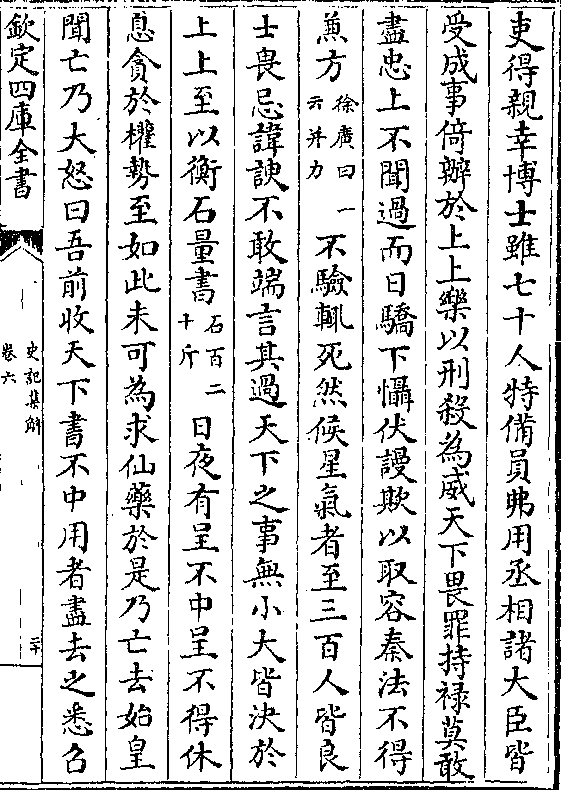 吏得親幸博士雖七十人特備員弗用丞相諸大臣皆
受成事倚辦於上上樂以刑殺為威天下畏罪持禄莫敢
盡忠上不聞過而日驕下懾伏謾欺以取容秦法不得
兼方徐廣曰一云并力不驗輒死然候星氣者至三百人皆良
士畏忌諱諛不敢端言其過天下之事無小大皆決於
上上至以衡石量書石百二十斤日夜有呈不中呈不得休
息貪於權勢至如此未可為求仙藥於是乃亡去始皇
聞亡乃大怒曰吾前收天下書不中用者盡去之悉召
欽定四庫全書
史記集解
卷六
二十